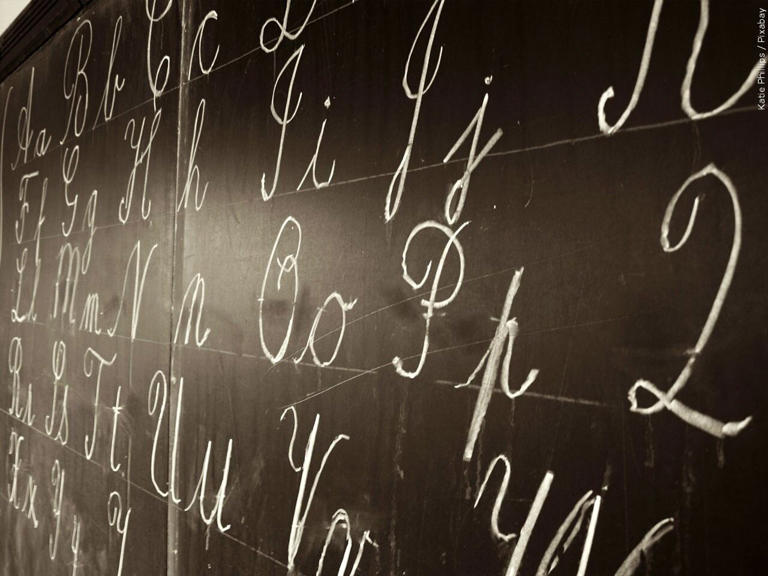 A a B b C c
F f G g H h I i J j
L l M m N n O o P p Q
R r S s T t U u V v W
X x Y y
Katie Phillips / Pixabay